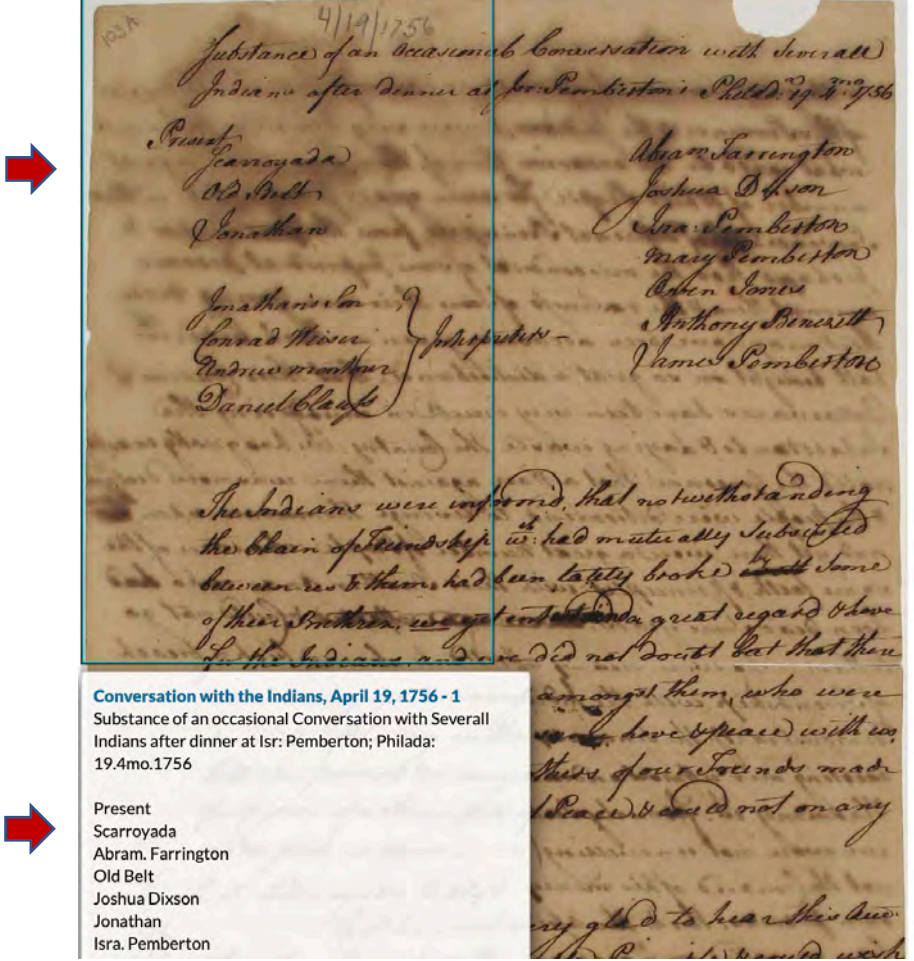 103A
4/19/1756
Substance of an occasional Conversation with Severall
Indians after dinner at Isr: Pemberton's Philad.ª 19 4mo 1756
Present
Scarroyada
Old Belt
Jonathan
Jonathan's Son
Conrad Weiser
Andrew Montour
Daniel Clauss
Interpreters -
Abram Farrington
Joshua Dixson
Isra: Pemberton
Mary Pemberton
Owen Jones
Anthony Benezett
James Pemberton
The Indians were informd, that notwithstanding
the Chain of Friendship wch: had mutually Subsisted
between us & them, had been lately broke by some
of their Brethren, we yet a great regard & Love
for the Indians, and we did not doubt but that there
amongst them, who were
Love & peace with us
of our Friends made
Peace & could not on any
very glad to hear this
Conversation with the Indians, April 19, 1756 - 1
Substance of an occasional Conversation with Severall
Indians after dinner at Isr: Pemberton; Philada:
19.4mo.1756
Present
Scarroyada
Abram. Farrington
Old Belt
Joshua Dixson
Jonathan
Isra. Pemberton